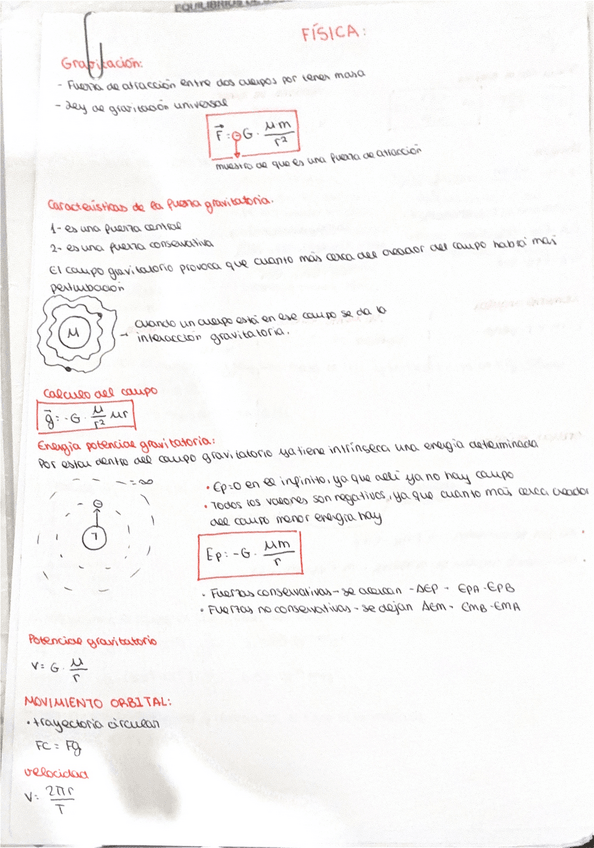 EQUILIBRIOS DE
FÍSICA:
Gravitación:
- Fuerza de atracción entre dos cuerpos por tener masa
- Ley de gravitación universal
F⃗ = - G · Mm / r²
muestro de que es una fuerza de atracción
Características de la fuerza gravitatoria.
1- es una fuerza central
2- es una fuerza conservativa
El campo gravitatorio provoca que cuanto más cerca del creador del campo habrá mas
perturbación
M
→ Cuando un cuerpo está en ese campo se da la
interacción gravitatoria.
Calculo del campo
g⃗ = -G · M / r² ur
Energía potencial gravitatoria:
Por estar dentro del campo gravitatorio ya tiene intrínseca una energía determinada
- = ∞
T
• Ep=0 en el infinito, ya que allí ya no hay campo
• Todos los valores son negativos, ya que cuanto más cerca creador
del campo menor energía hay
Ep = -G · Mm / r
• Fuerzas conservativas - se acercan - ΔEP - EPA - EPB
• Fuerzas no conservativas - se dejan ΔEM - EMB - EMA
Potencial gravitatorio
V = G · M / r
MOVIMIENTO ORBITAL:
• trayectoria circular
FC = Fg
velocidad
V = 2πr / T